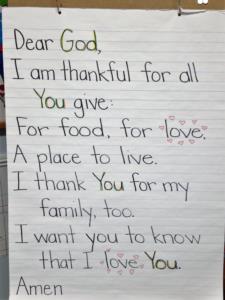 Dear God,
I am thankful for all
You give:
For food, for love,
A place to live.
I thank You for my
family, too.
I want you to know
that I love You.
Amen